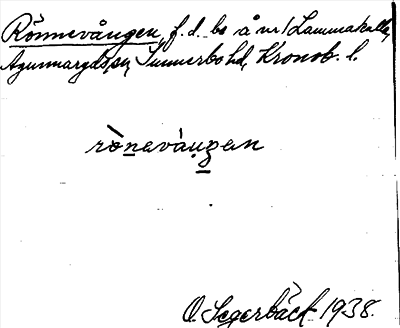 Rönnevången, f. d. bs å nr 1 Lammakulla,
Agunnaryds sn, Sunnerbo hd, Kronob. l.
rònevàŋen
O. Segerbäck 1938.